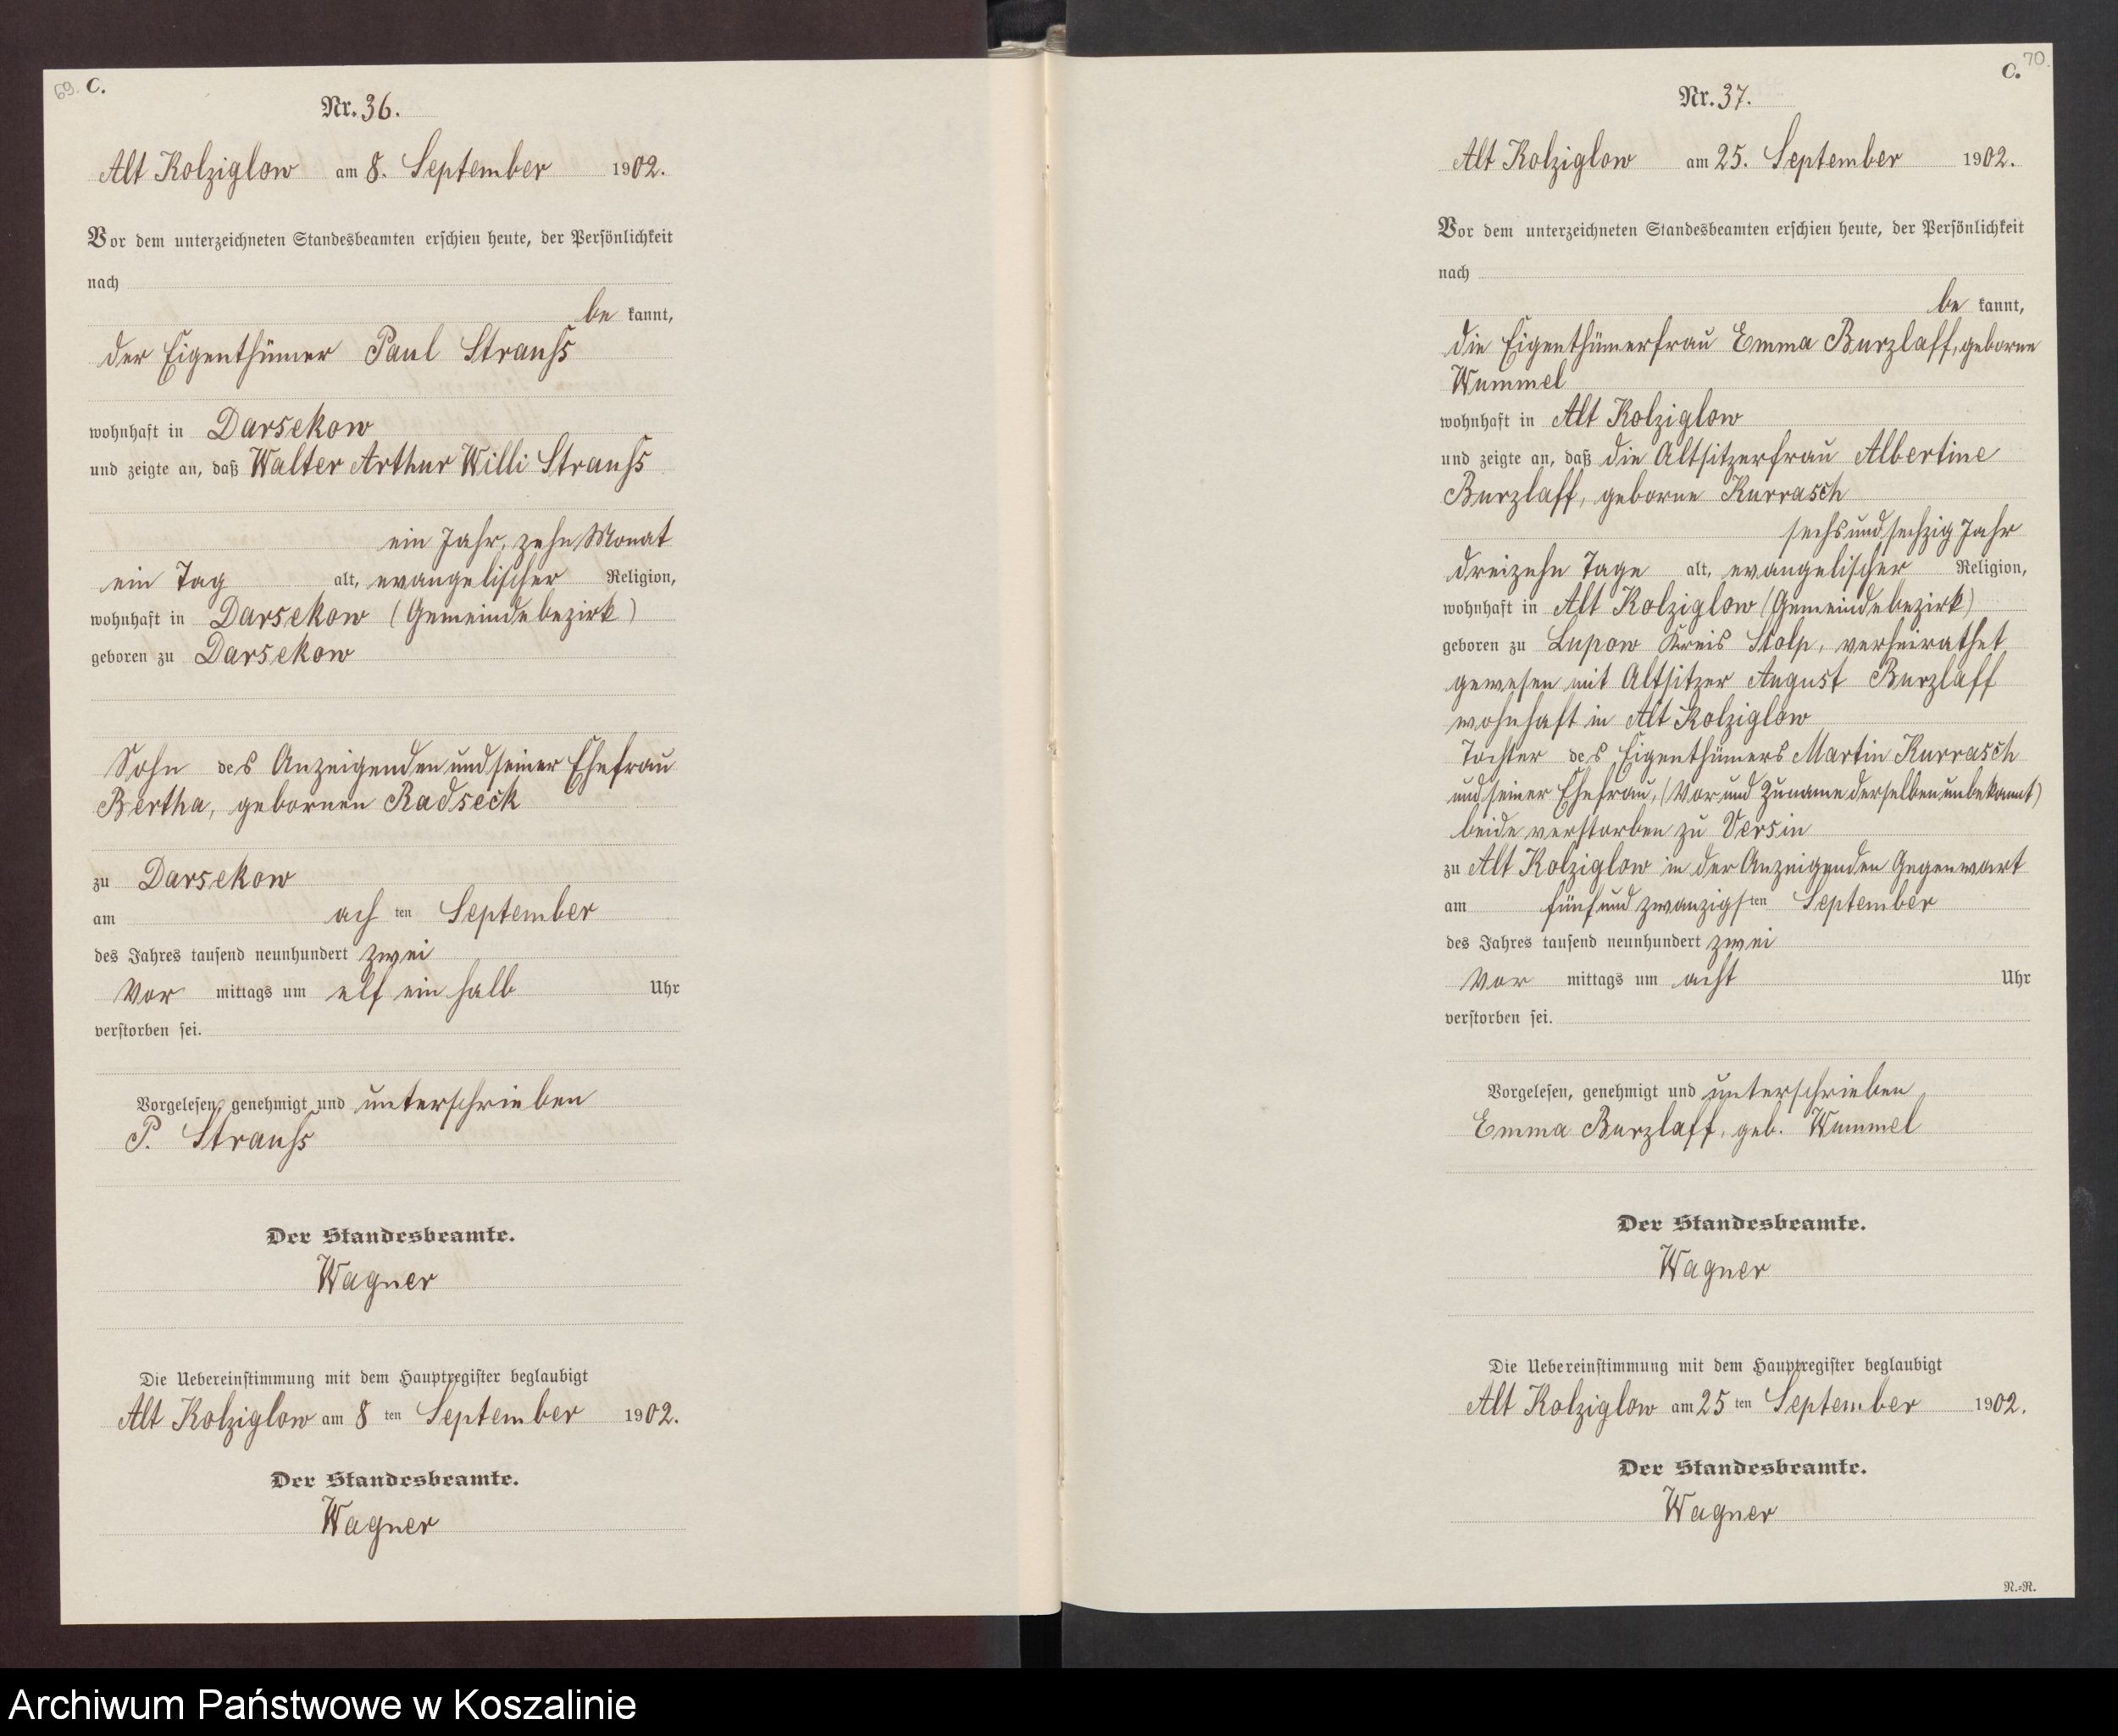 69. C.
Nr. 36.
Alt Kolziglow am 8. September 1902.
Vor dem unterzeichneten Standesbeamten erschien heute, der Persönlichkeit
nach
be kannt,
der Eigenthümer Paul Strauss
wohnhaft in Darsekow
und zeigte an, daß Walter Arthur Willi Strauss
ein Jahr, zehn Monat
ein Tag alt, evangelischer Religion,
wohnhaft in Darsekow (Gemeindebezirk)
geboren zu Darsekow
Sohn des Anzeigenden und seiner Ehefrau
Bertha, gebornen Radseck
zu Darsekow
am ach ten September
des Jahres tausend neunhundert zwei
Vor mittags um elf ein halb Uhr
verstorben sei.
Vorgelesen, genehmigt und unterschrieben
P. Strauss
Der Standesbeamte.
Wagner
Die Uebereinstimmung mit dem Hauptregister beglaubigt
Alt Kolziglow am 8 ten September 1902.
Der Standesbeamte.
Wagner
C. 70.
Nr. 37.
Alt Kolziglow am 25. September 1902.
Vor dem unterzeichneten Standesbeamten erschien heute, der Persönlichkeit
nach
be kannt,
die Eigenthümerfrau Emma Burzlaff, geborne
Wummel
wohnhaft in Alt Kolziglow
und zeigte an, daß die Altsitzerfrau Albertine
Burzlaff, geborne Kurrasch
sechs und sechzig Jahr
dreizehn Tage alt, evangelischer Religion,
wohnhaft in Alt Kolziglow (Gemeindebezirk)
geboren zu Lupow Kreis Stolp, verheirathet
gewesen mit Altsitzer August Burzlaff
wohnhaft in Alt Kolziglow
Tochter des Eigenthümers Martin Kurrasch
und seiner Ehefrau, (Vor und Zuname derselben unbekannt)
beide verstorben zu Versin
zu Alt Kolziglow in der Anzeigenden Gegenwart
am fünf und zwanzigs ten September
des Jahres tausend neunhundert zwei
Vor mittags um acht Uhr
verstorben sei.
Vorgelesen, genehmigt und unterschrieben
Emma Burzlaff, geb. Wummel
Der Standesbeamte.
Wagner
Die Uebereinstimmung mit dem Hauptregister beglaubigt
Alt Kolziglow am 25 ten September 1902.
Der Standesbeamte.
Wagner
N.=N.
Archiwum Państwowe w Koszalinie